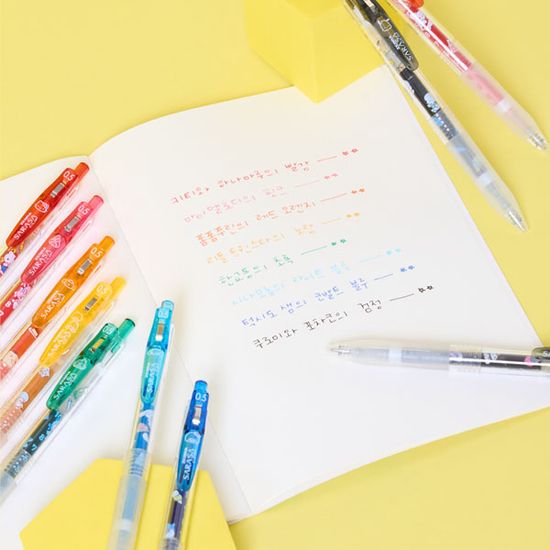 키티와 하나마루의 빨강
마이멜로디의 핑크
폼폼푸린의 레드 오렌지
리틀 트윈스타의 노랑
한교동의 초록
시나모롤의 라이트 블루
턱시도 샘의 코발트 블루
쿠로미와 포차코의 검정
SARASA
0.5
SARASA
0.5
SARASA
SARASA
SARASA
SARASA
0.5
SARASA
0.5
SARASA